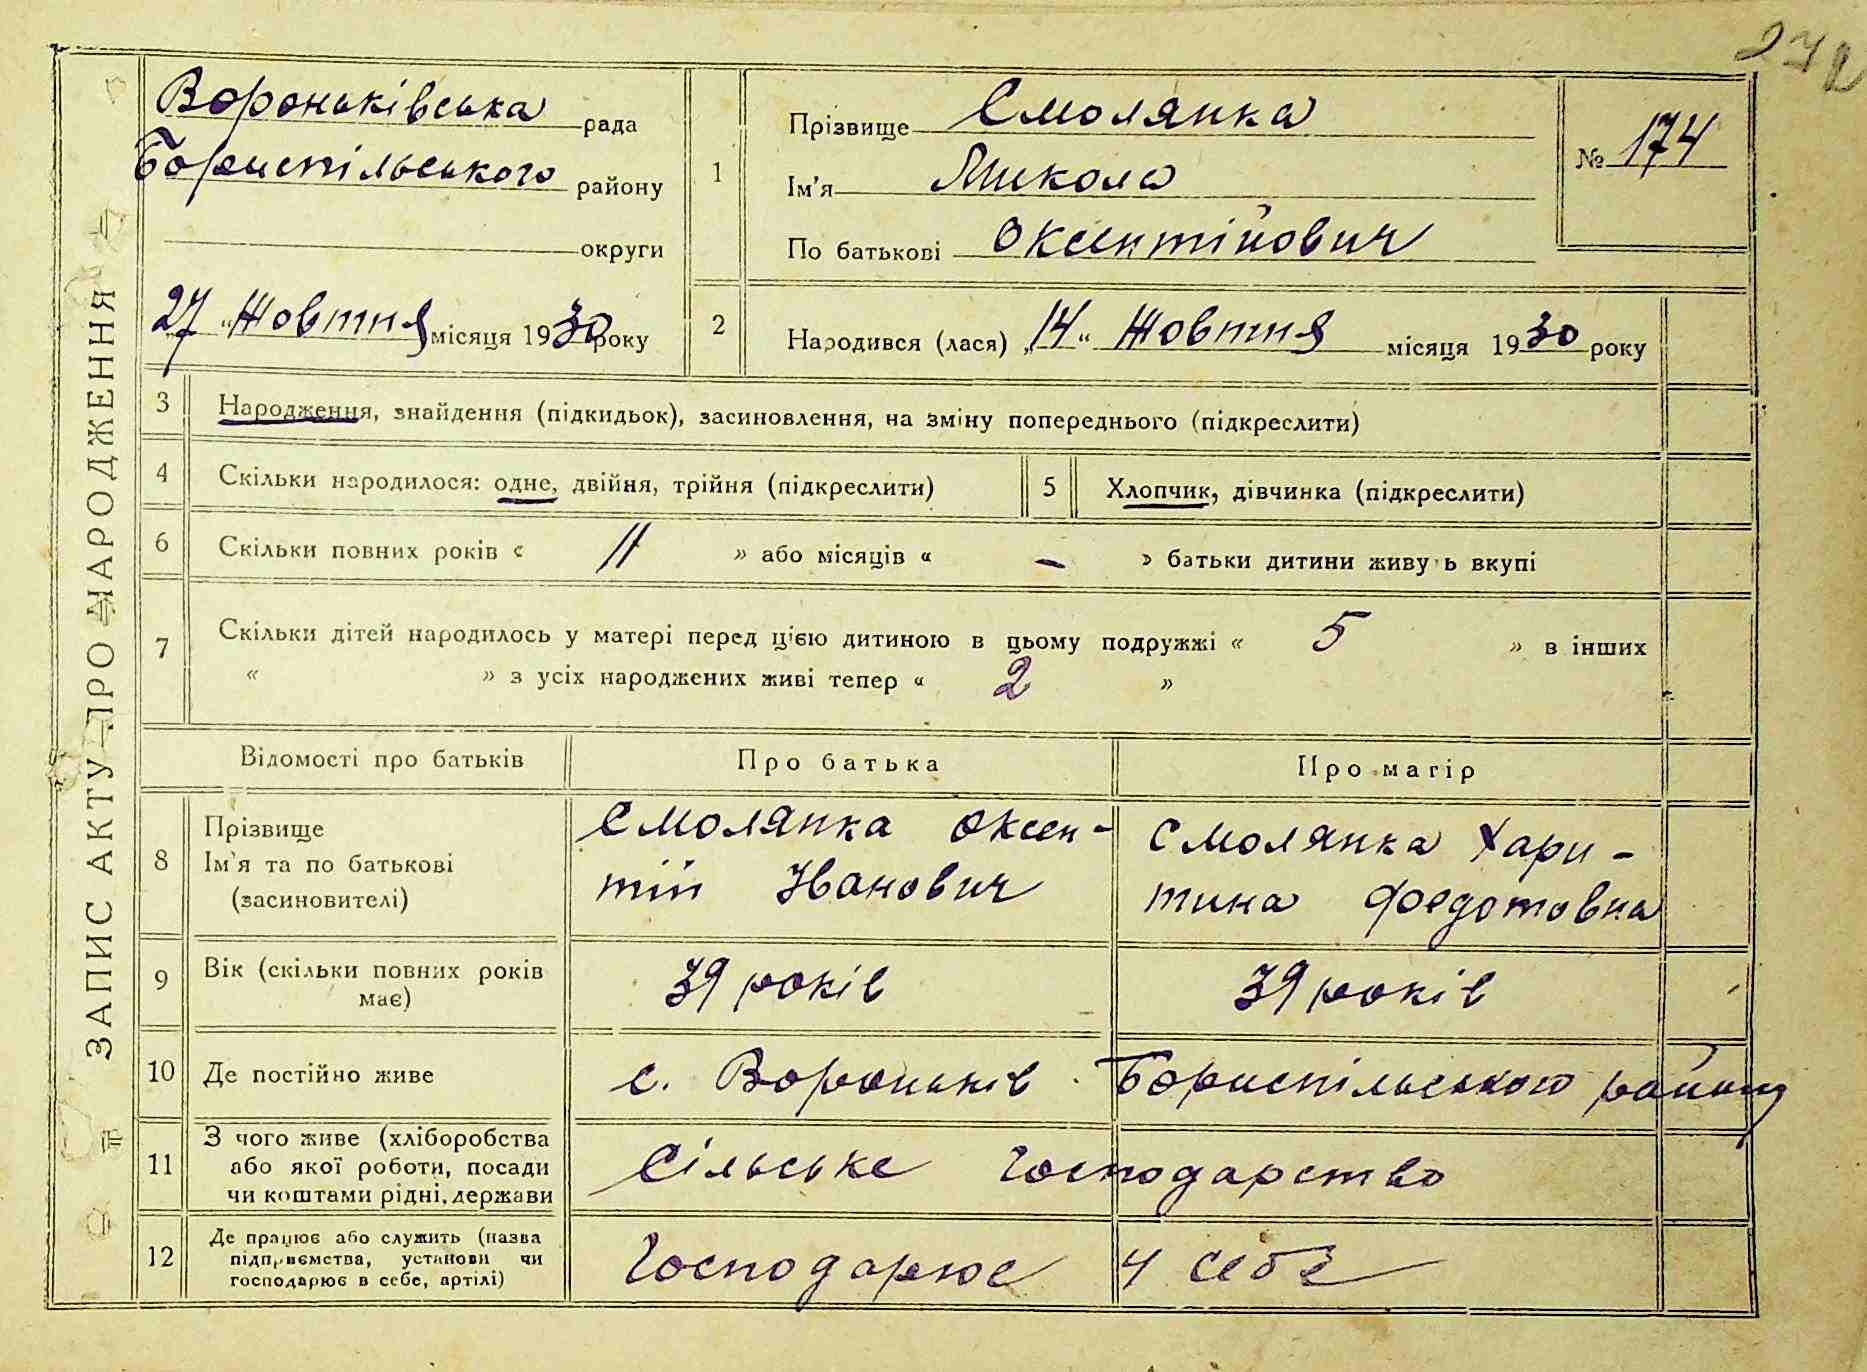 272
ЗАПИС АКТУ ПРО НАРОДЖЕННЯ
Вороньківська рада
Бориспільського району
округи
27 „ Жовтня місяця 1930 року
1
Прізвище Смолянка
Ім'я Микола
По батькові Оксентійович
№ 174
2
Народився (лася) „14“ Жовтня місяця 1930 року
3 Народження, знайдення (підкидьок), засиновлення, на зміну попереднього (підкреслити)
4 Скільки народилося: одне, двійня, трійня (підкреслити)
5 Хлопчик, дівчинка (підкреслити)
6 Скільки повних років « 11 » або місяців « – » батьки дитини живу ь вкупі
7 Скільки дітей народилось у матері перед цією дитиною в цьому подружжі « 5 » в інших
« » з усіх народжених живі тепер « 2 »
Відомості про батьків Про батька Про матір
8
Прізвище
Ім'я та по батькові
(засиновителі)
Смолянка Оксен-
тій Иванович
Смолянка Хари-
тина Федотовна
9
Вік (скільки повних років
має)
39 років
39 років
10 Де постійно живе с. Вороньків Бориспільського району
11
З чого живе (хліборобства
або якої роботи, посади
чи коштами рідні, держави
Сільське господарство
12
Де працює або служить (назва
підприємства, установи чи
господарює в себе, артілі)
Господарює у себе